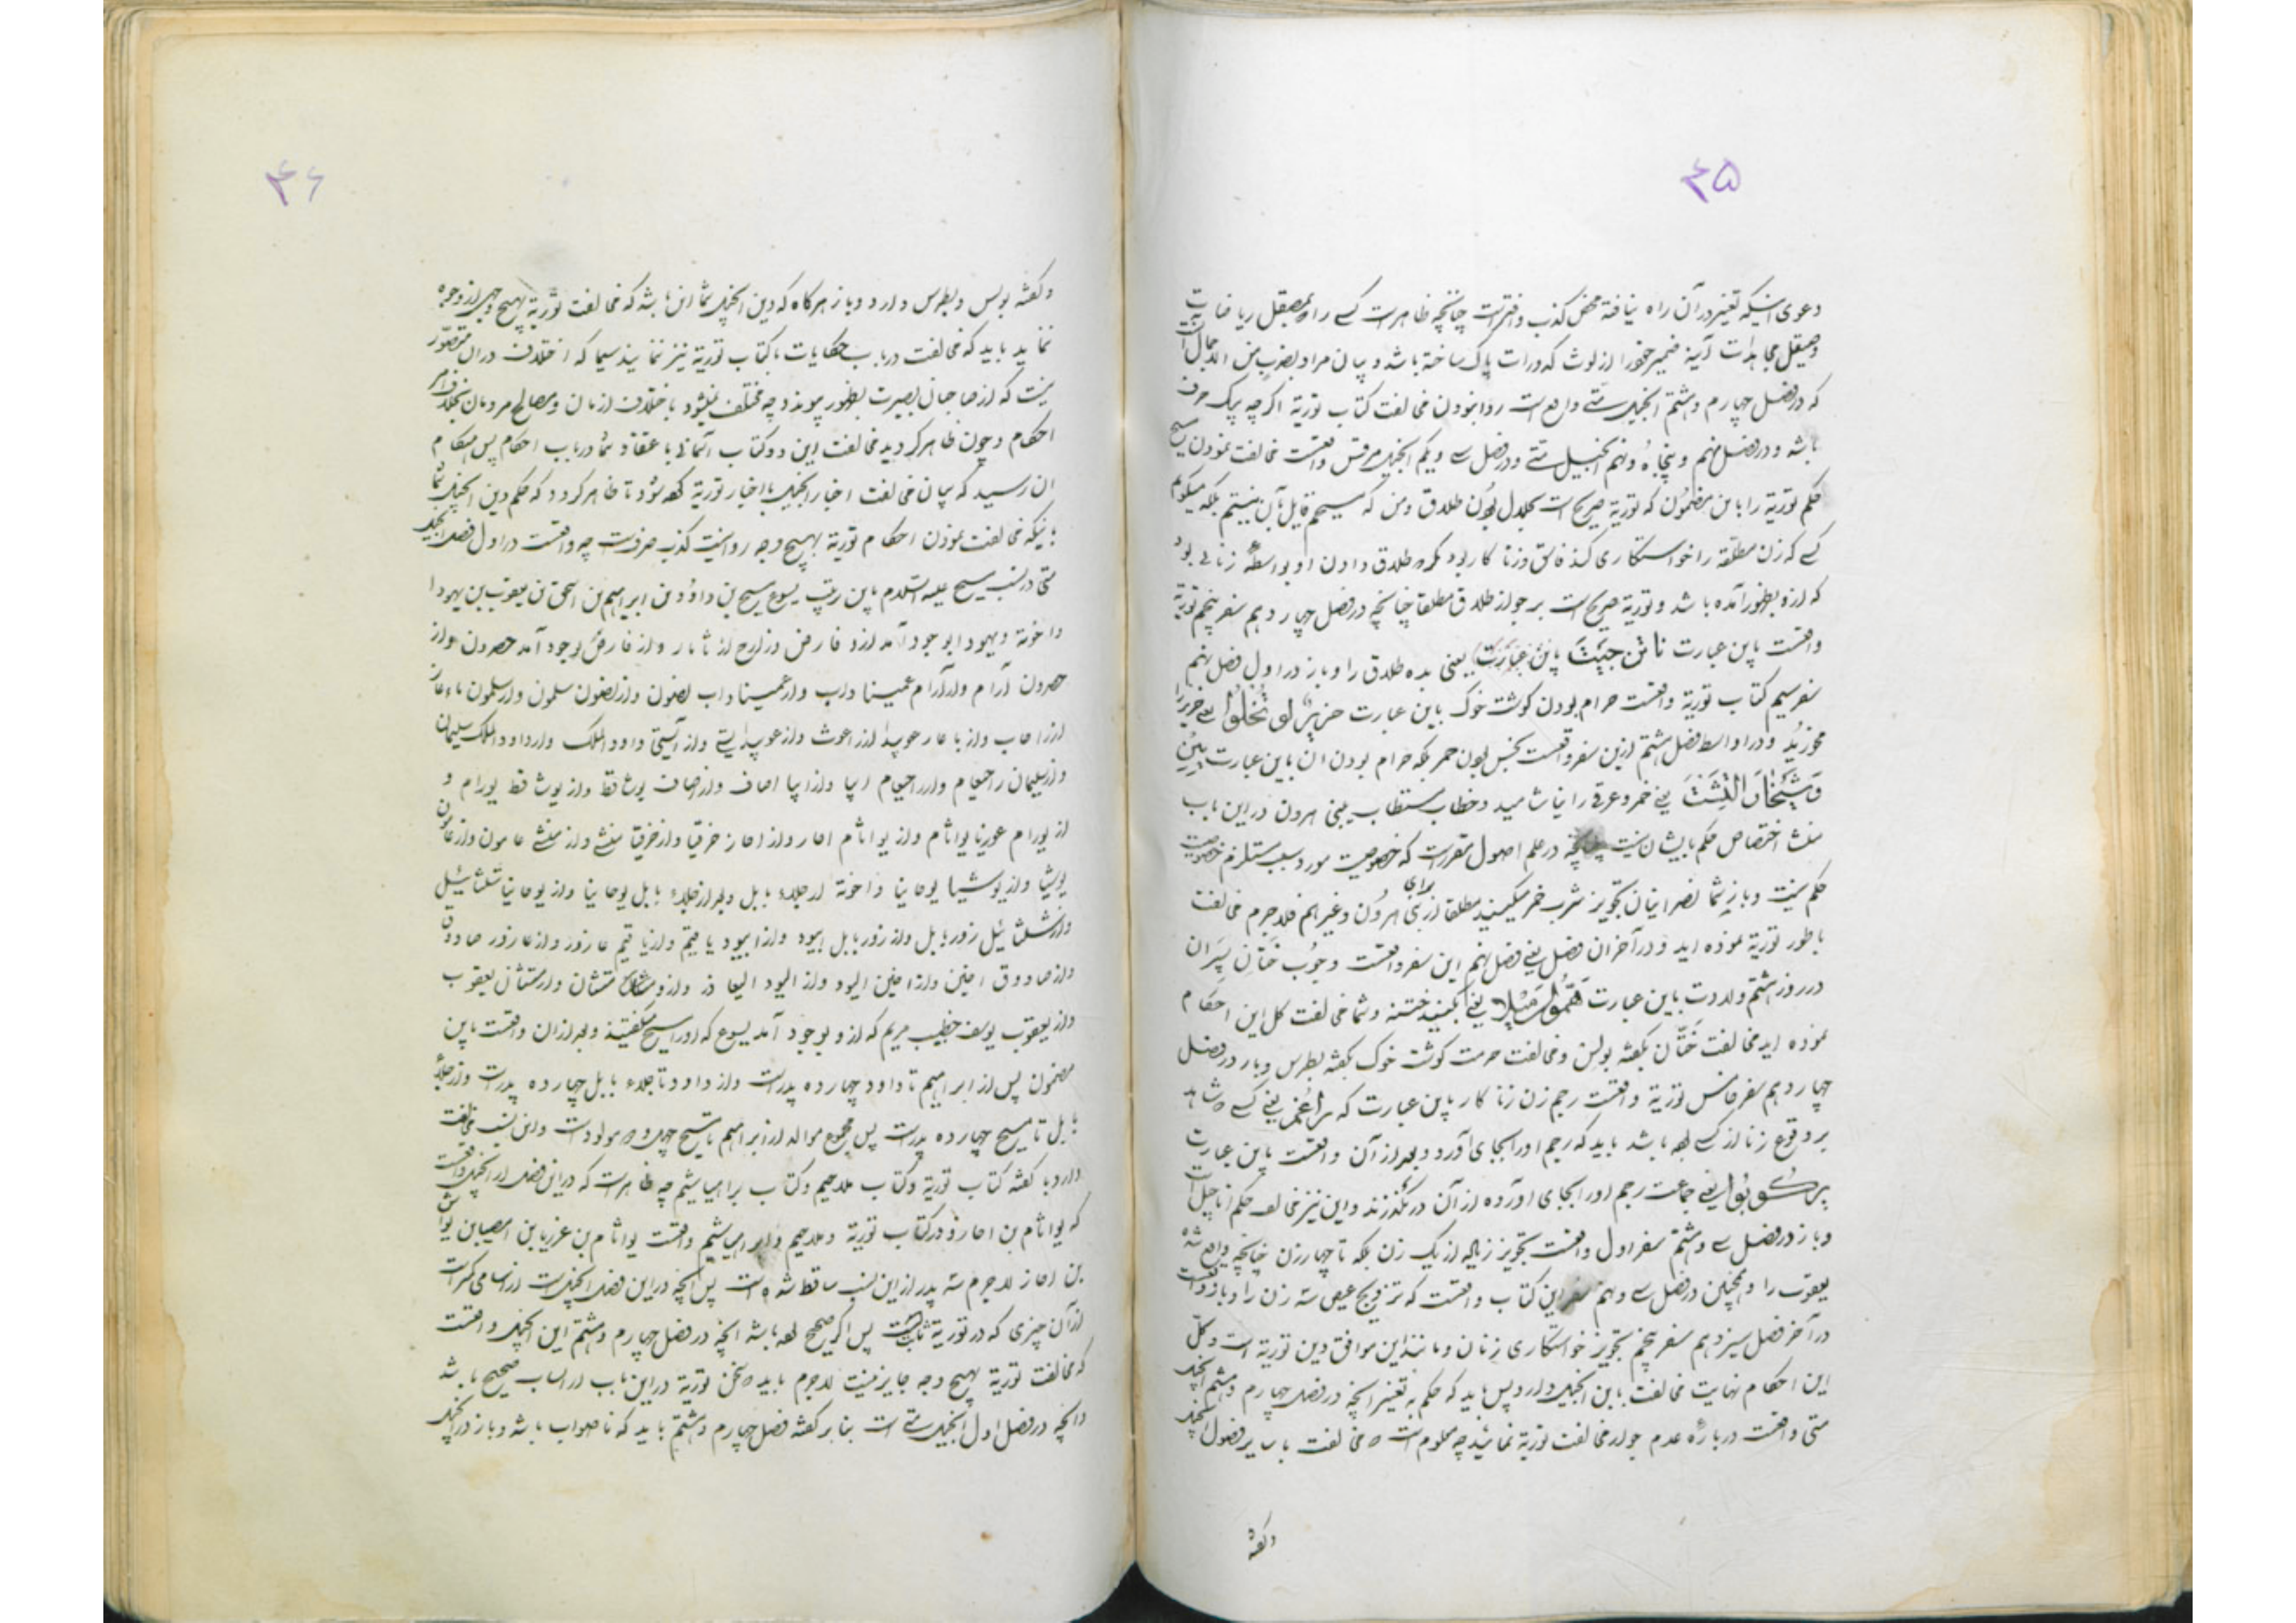 ۴۵
دعوی اینکه تغیر در آن راه نیافته محض کذب و افتراست چنانچه ظاهرست کسے را که بمصقل ریاضات
وصیقل مجاهدات آینهٔ ضمیر خود را از لوث کدورات پاک ساخته باشد و بیان مراد بضرب من الاجمال آن
که در فصل چهارم و هشتم انجیل متے واقع است روا نبودن مخالفت کتاب توریة اگرچه بیک حرف
باشد و در فصل نهم و پنجاه و نهم انجیل متے و در فصل سے و یکم انجیل مرقس واقعست مخالفت نمودن مسیح
حکم توریة را باین مضمون که توریة صریح است بحلال بودن طلاق و من که مسیحم قایل بآن نیستم بلکه میگویم
کسے که زن مطلّقه را خواستکاری کند فاسق و زنا کار بود مکر ه طلاق دادن او بواسطهٔ زنائے بود
که ازو بظهور آمده باشد و توریة صریح است بر جواز طلاق مطلقا چنانچه در فصل چهاردهم سفر پنجم توریة
واقعست باین عبارت ناتن جیت باین عبارت یعنی بده طلاق را و باز در اول فصل نهم
سفر سیم کتاب توریة واقعست حرام بودن کوشت خوک باین عبارت حزیر لو تخلوا یعنے خنزیر را
مخورید و در اواسط فصل هشتم ازین سفر واقعست نجس بودن خمر بلکه حرام بودن آن باین عبارت یین
وشیخار التشت یعنے خمر و عرق را نیاشامید و خطاب مستطاب ببنی هرون در این باب
منشا اختصاص حکم بایشان نیست چنانچه در علم اصول مقررست که خصوصیت مورد سبب مستلزم خصوصیت
حکم نیست و باز شما نصرانیان تجویز شرب خمر میکنید مطلقا از برای اهرون و غیر اهم فلاجرم مخالفت
باطور توریة نموده اید و در آخر ان فصل یعنے فصل نهم این سفر واقعست وجوب ختان پسران
در روز هشتم ولادت باین عبارت یعنے بکنید ختنه و شما مخالفت کل این احکام
نموده اید مخالفت ختان بکفته بولس و مخالفت حرمت کوشت خوک بکفته بطرس و باز در فصل
چهاردهم سفر خامس توریة واقعست رجم زن زنا کار باین عبارت که یعنے کسے ه شاهد
بر وقوع زنا از کسے بوده باشد باید که رجم او را بجای آورد و بعد از آن واقعست باین عبارت
یعنے جماعت رجم او را بجای آورده از آن در نکذرند و این نیز مخالف حکم اناجیل است
و باز در فصل سے و هشتم سفر اول واقعست تجویز زیاده از یک زن بلکه تا چهار زن چنانچه واقع شده
یعقوب را و همچنین در فصل سے و نهم سفر این کتاب واقعست که تزویج عیص سه زن را و باز واقعست
در آخر فصل سیزدهم سفر پنجم تجویز خواستکاری زنان و مانند این موافق دین توریة است و کل
این احکام نهایت مخالفت باین انجیل دارد پس باید که حکم به تغیر آنچه در فصل چهارم و هشتم انجیل
متی واقعست درباره عدم جواز مخالفت توریة نمائید چه معلوم است ه مخالفت با سایر فصول انجیل
و کفته
۴۶
و کفته بولس و بطرس دارد و باز هرکاه که دین انجیل شما این باشد که مخالفت توریة بهیچ وجهی از وجوه
ننماید باید که مخالفت در باب حکایات با کتاب توریة نیز ننمایند سیما که اختلاف در ان متصوّر
نیست که از صاحبان بصیرت بظهور پیوندد چه مختلف نمیشود باختلاف ازمان و مصالح مردمان بخلاف امر
احکام و چون ظاهر کردید مخالفت این دو کتاب آسمانی با عقاد شما در باب احکام پس هنکام
ان رسید که بیان مخالفت اخبار انجیل با اخبار توریة کفته شود تا ظاهر کردد که حکم دین انجیل شما
باینکه مخالفت نمودن احکام توریة بهیچ وجه روا نیست کذب صرفست چه واقعست در اول فصل انجیل
متی در نسب مسیح علیه السلام باین ترتیب یسوع مسیح بن داؤد بن ابراهیم بن اسحق بن یعقوب بن یهودا
و اخوته و یهودا بوجود آمد ازو فارض و زارح از ثامار و از فارض بوجود آمد حصرون و از
حصرون آرام و از آرام عمیناداب و از عمیناداب نصون و از نصون سلمون و از سلمون باعار
از راحاب و از باعار عوبید از راعوث و از عوبید ایسے و از آیسی داود الملک و از داود الملک سلیمان
و از سلیمان راحبعام و از راحبعام ابیا و از ابیا اصاف و از اصاف یوشافط و از یوشافط یورام و
از یورام عوزیا یواثام و از یواثام احاز و از احاز حزقیا و از حزقیا منشے و از منشے عامون و از عامون
یوشیا و از یوشیا یوحانیا و اخوته از جلاء بابل و بعد از جلاء بابل یوحانیا و از یوحانیا شلتائیل
و از شلتائیل زوربابل و از زوربابل ابیود و از ابیود یاقیم و از یاقیم عازور و از عازور صادوق
و از صادوق اخین و از اخین الیود و از الیود الیعاذر و از و متثان و از متثان یعقوب
و از یعقوب یوسف خطیب مریم که ازو بوجود آمد یسوع که او را مسیح میکفتند و بعد از ان واقعست باین
مضمون پس از ابراهیم تا داود چهارده پدرست و از داود تا جلاء بابل چهارده پدرست و از جلاء
بابل تا مسیح چهارده پدرست پس مجموع موالد از ابراهیم تا مسیح چهل و ه مولودست و این نسب مخالفت
دارد با کفته کتاب توریة و کتاب ملاحیم و کتاب براهیاشیم چه ظاهرست که در این فصل از انجیل واقعست
که یواثام بن احاز و در کتاب توریة و ملاحیم و براهیاشیم واقعست یواثام بن عزریا بن امصیا بن یواش
بن احاز لاجرم سه پدر از این نسب ساقط شده است پس آنچه در این فصل انجیلست از اسامی کمتر است
از آن چیزی که در توریة ثابت است پس اگر صحیح بوده باشد آنچه در فصل چهارم و هشتم این انجیل واقعست
که مخالفت توریة بهیچ وجه جایز نیست لاجرم باید ه سخن توریة در این باب از انساب صحیح باشد
و آنچه در فصل اول انجیل متے است بنا بر کفته فصل چهارم و هشتم باید که ناصواب باشد و باز در انجیل